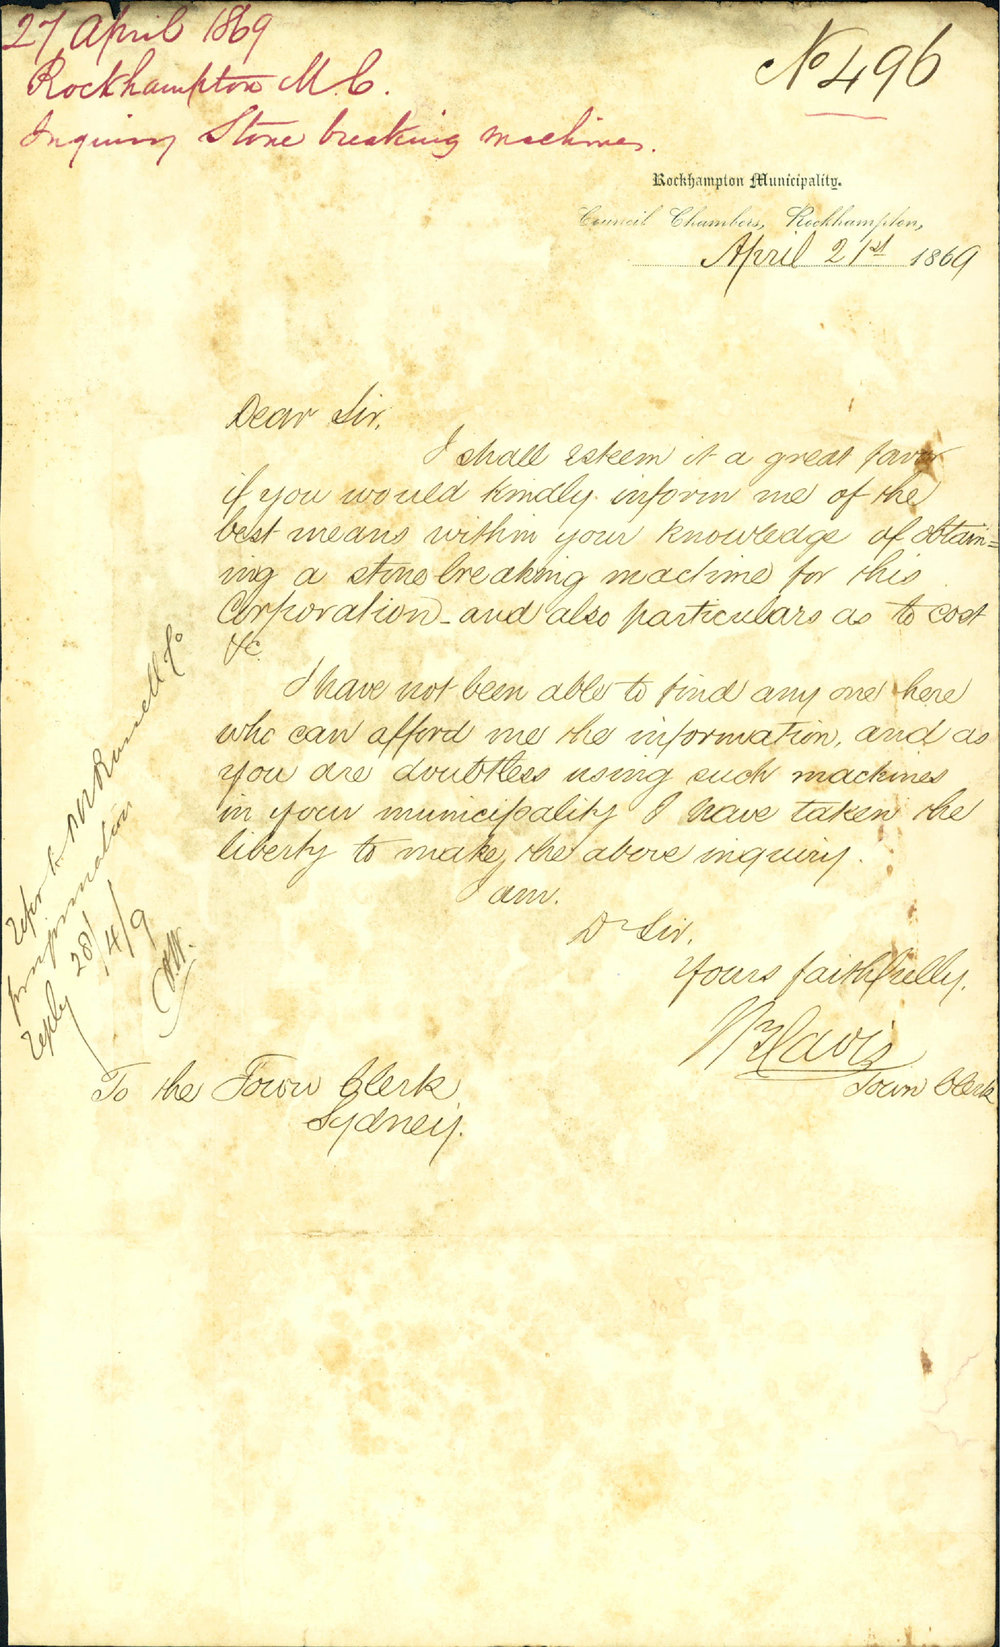 27 April 1869
Rockhampton M.C.
Inquiry Stone breaking machines.
No 496
Rockhampton Municipality.
Council Chambers, Rockhampton,
April 21st 1869
Dear Sir,
I shall esteem it a great favor
if you would kindly inform me of the
best means within your knowledge of obtain=
ing a stone breaking machine for this
Corporation - and also particulars as to cost
&c.
I have not been able to find any one here
who can afford me the information, and as
you are doubtless using such machines
in your municipality I have taken the
liberty to make the above inquiry.
I am.
Dr Sir,
Yours faithfully,
Davis
Town Clerk
To the Town Clerk
Sydney.
Refer to Russell & Co
for information
reply 28/4/9